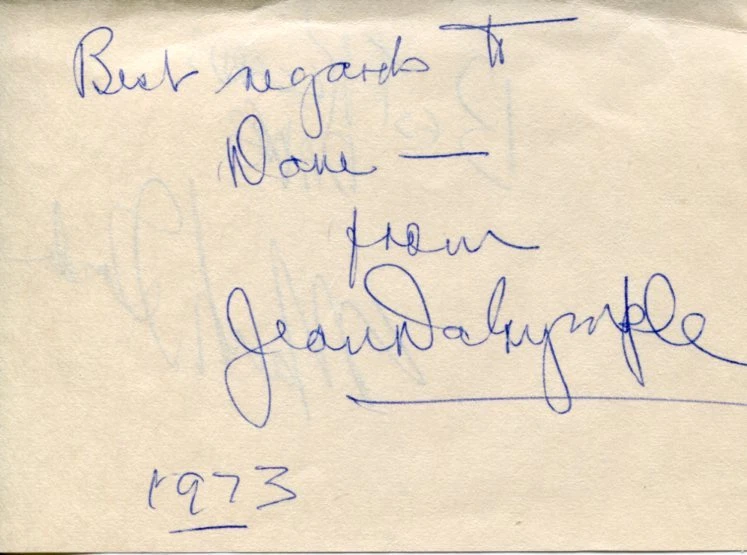 Best regards to
Dave —
from
Jean Dalrymple
1973